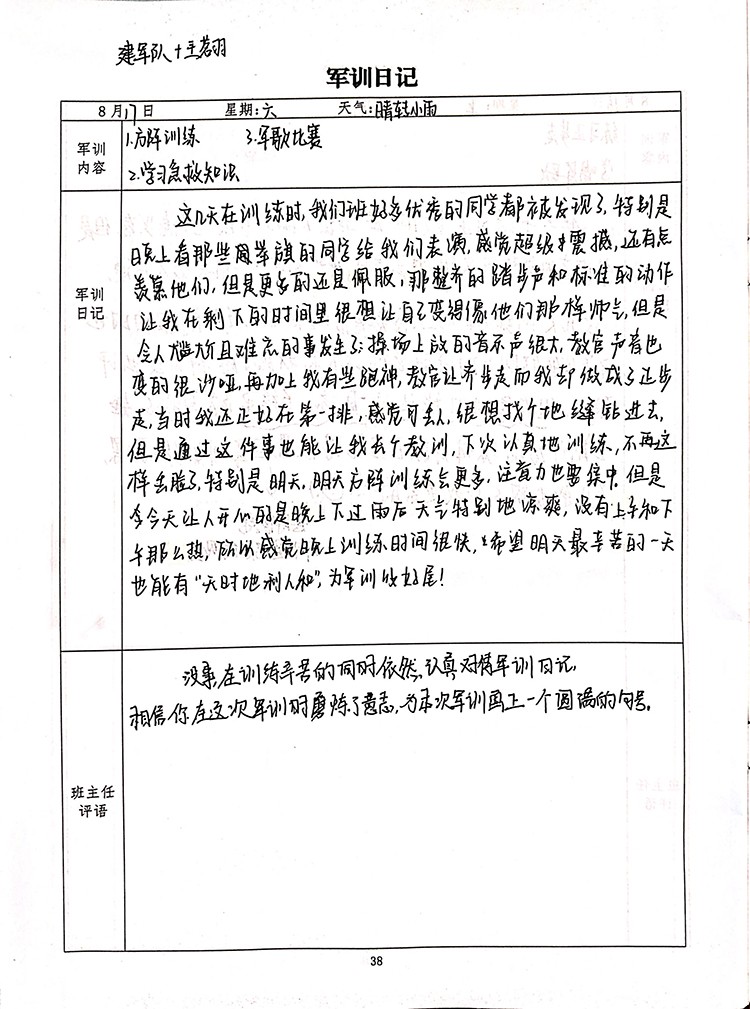 建军队十王若羽
军训日记
8月17日 星期:六 天气:晴转小雨
军训内容
1.方阵训练 3.军歌比赛
2.学习急救知识
军训日记
这几天在训练时,我们班好多优秀的同学都被发现了,特别是
晚上看那些国军旗的同学给我们表演,感觉超级震撼,还有点
羡慕他们,但是更多的还是佩服,那整齐的踏步声和标准的动作
让我在剩下的时间里很想让自己变得像他们那样帅气,但是
令人尴尬且难忘的事发生了:操场上放的音乐声很大,教官声音也
变的很沙哑,再加上我有些跑神,教官让齐步走而我却做成了正步
走,当时我还正好在第一排,感觉可丢人,很想找个地缝钻进去,
但是通过这件事也能让我长个教训,下次认真地训练,不再这
样丢脸了,特别是明天,明天方阵训练会更多,注意力也要集中,但是
今天让人开心的是晚上下过雨后天气特别地凉爽,没有上午和下
午那么热,所以感觉晚上训练时间很快,希望明天最辛苦的一天
也能有“天时地利人和”,为军训收好尾!
班主任评语
在训练辛苦的同时依然认真对待军训日记,
相信你在这次军训时磨炼了意志,为本次军训画上一个圆满的句号。
38